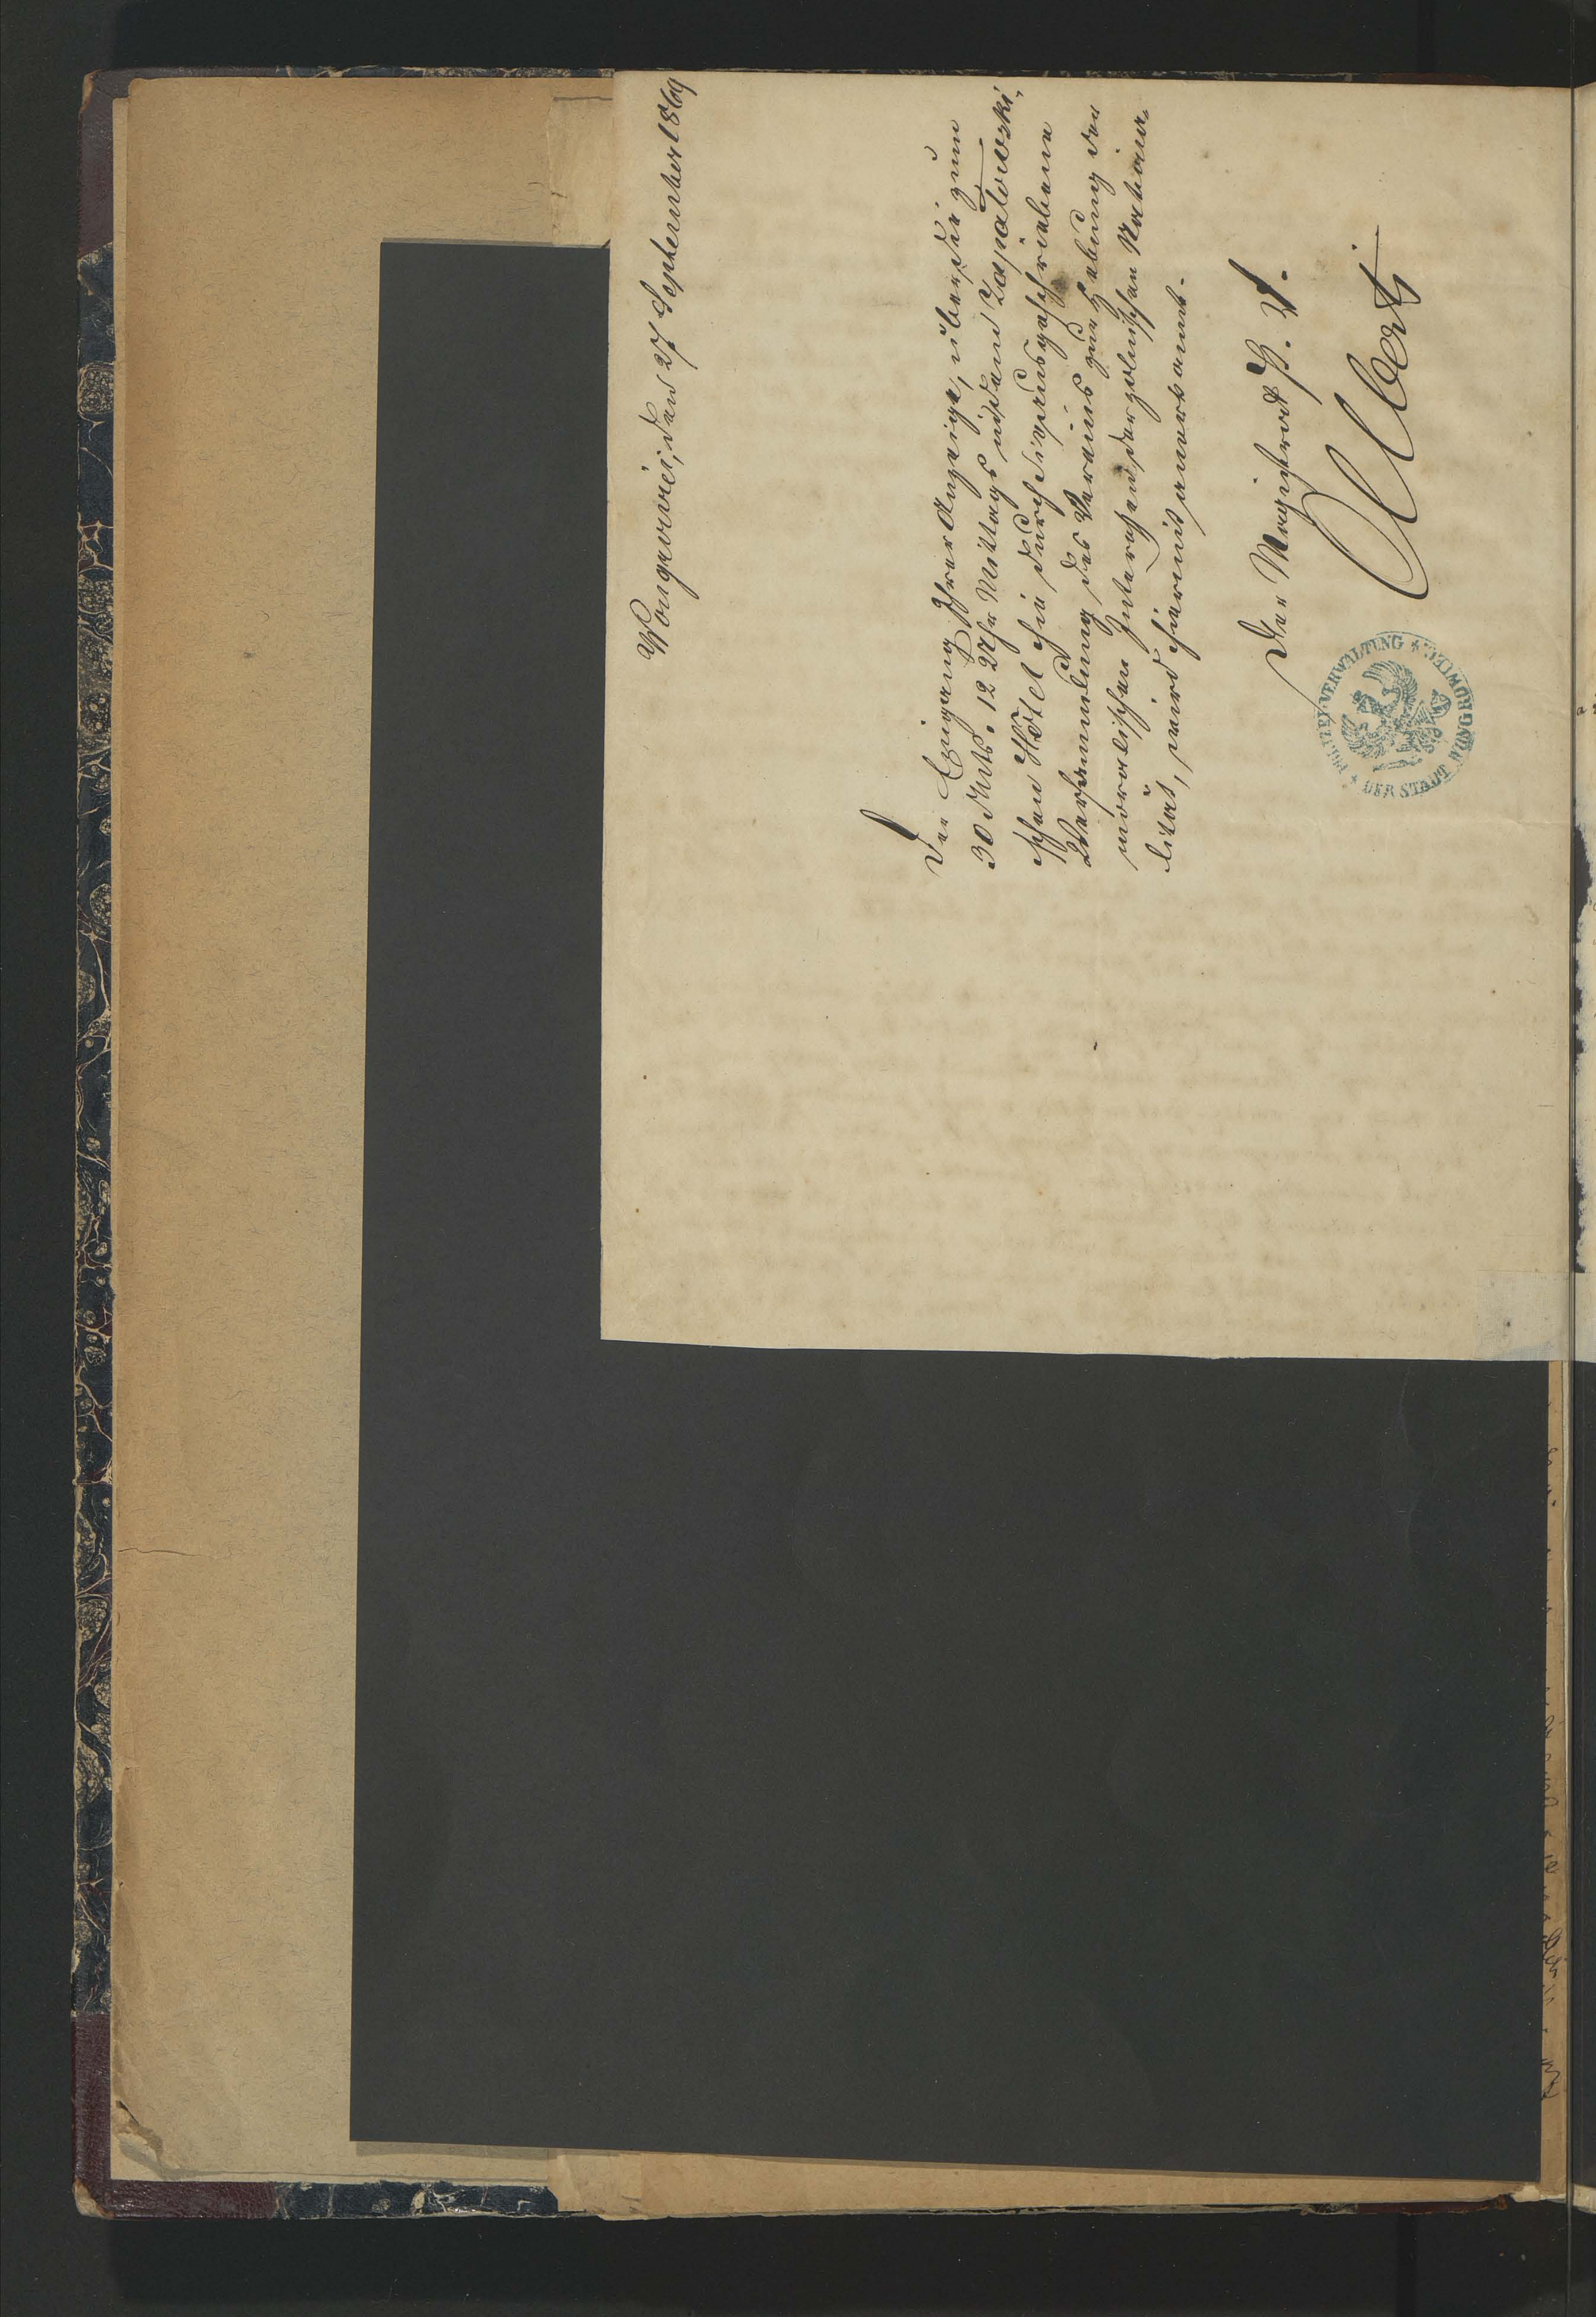 Wongrowiec, den 27 September 1869
Der Eingang Ihrer Anzeige, über die zum
30 d Mts. 12 Uhr Mittags in dem Zapalowski-
schen Hôtel hie durch Sie ausgeschriebene
Versammlung des Vereins zur Hebung der
moralischen Interessen der polnischen Natio-
lität, wird hiermit anerkannt.
Der Magistrat P. V.
Albert
POLIZEI-VERWALTUNG
DER STADT WONGROWIEC